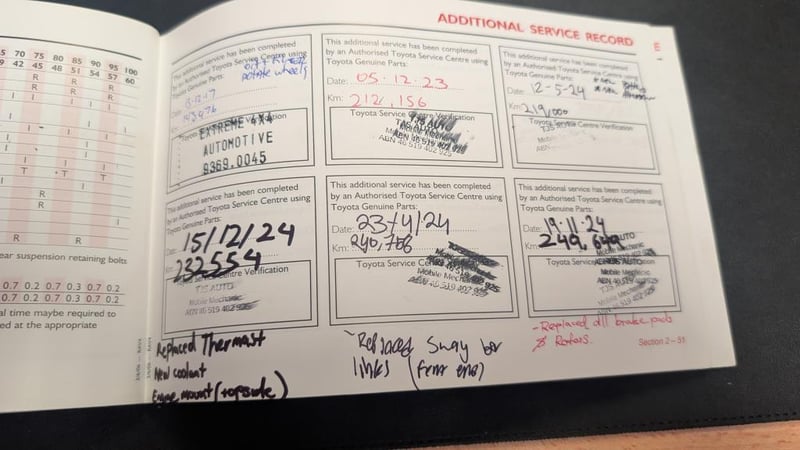 ADDITIONAL SERVICE RECORD
5 70 75 80 85 90 95 100
9 42 45 48 51 54 57 60
R R R
R R R
I I I
I I
I
I
I I
I I I
T T T
R
R
I
R R
ear suspension retaining bolts
0.7 0.2 0.7 0.3 0.7 0.2
0.7 0.2 0.7 0.3 0.7 0.2
al time maybe required to
ed at the appropriate
This additional service has been completed
by an Authorised Toyota Service Centre using
Toyota Genuine Parts:
rotate wheels
Date:
Km:
Toyota Service Centre Verification
EXTREME 4X4
AUTOMOTIVE
9369.0045
This additional service has been completed
by an Authorised Toyota Service Centre using
Toyota Genuine Parts:
Date: 05.12.23
Km: 212,156
Toyota Service Centre Verification
TJS AUTO
Mobile Mechanic
ABN 46 519 402 925
This additional service has been completed
by an Authorised Toyota Service Centre using
Toyota Genuine Parts:
Date: 12-5-24
Km: 219,000
Toyota Service Centre Verification
TJS AUTO
Mobile Mechanic
ABN
This additional service has been completed
by an Authorised Toyota Service Centre using
Toyota Genuine Parts:
Date: 15/12/24
Km: 232554
Toyota Service Centre Verification
TJS AUTO
Mobile Mechanic
ABN 46 519 402 925
This additional service has been completed
by an Authorised Toyota Service Centre using
Toyota Genuine Parts:
Date: 23/4/24
Km: 240,756
Toyota Service Centre Verification
Mobile Mechanic
ABN 46 519 402 925
This additional service has been completed
by an Authorised Toyota Service Centre using
Toyota Genuine Parts:
Date: 19.11.24
Km: 249,649
Toyota Service Centre Verification
Mobile Mechanic
ABN 46 519 402 925
Replaced Thermast
New coolant
Engine mount (topside)
Replaced Sway bar
links (front end)
- Replaced all brake pads
& Rotors.
Section 2 – 51